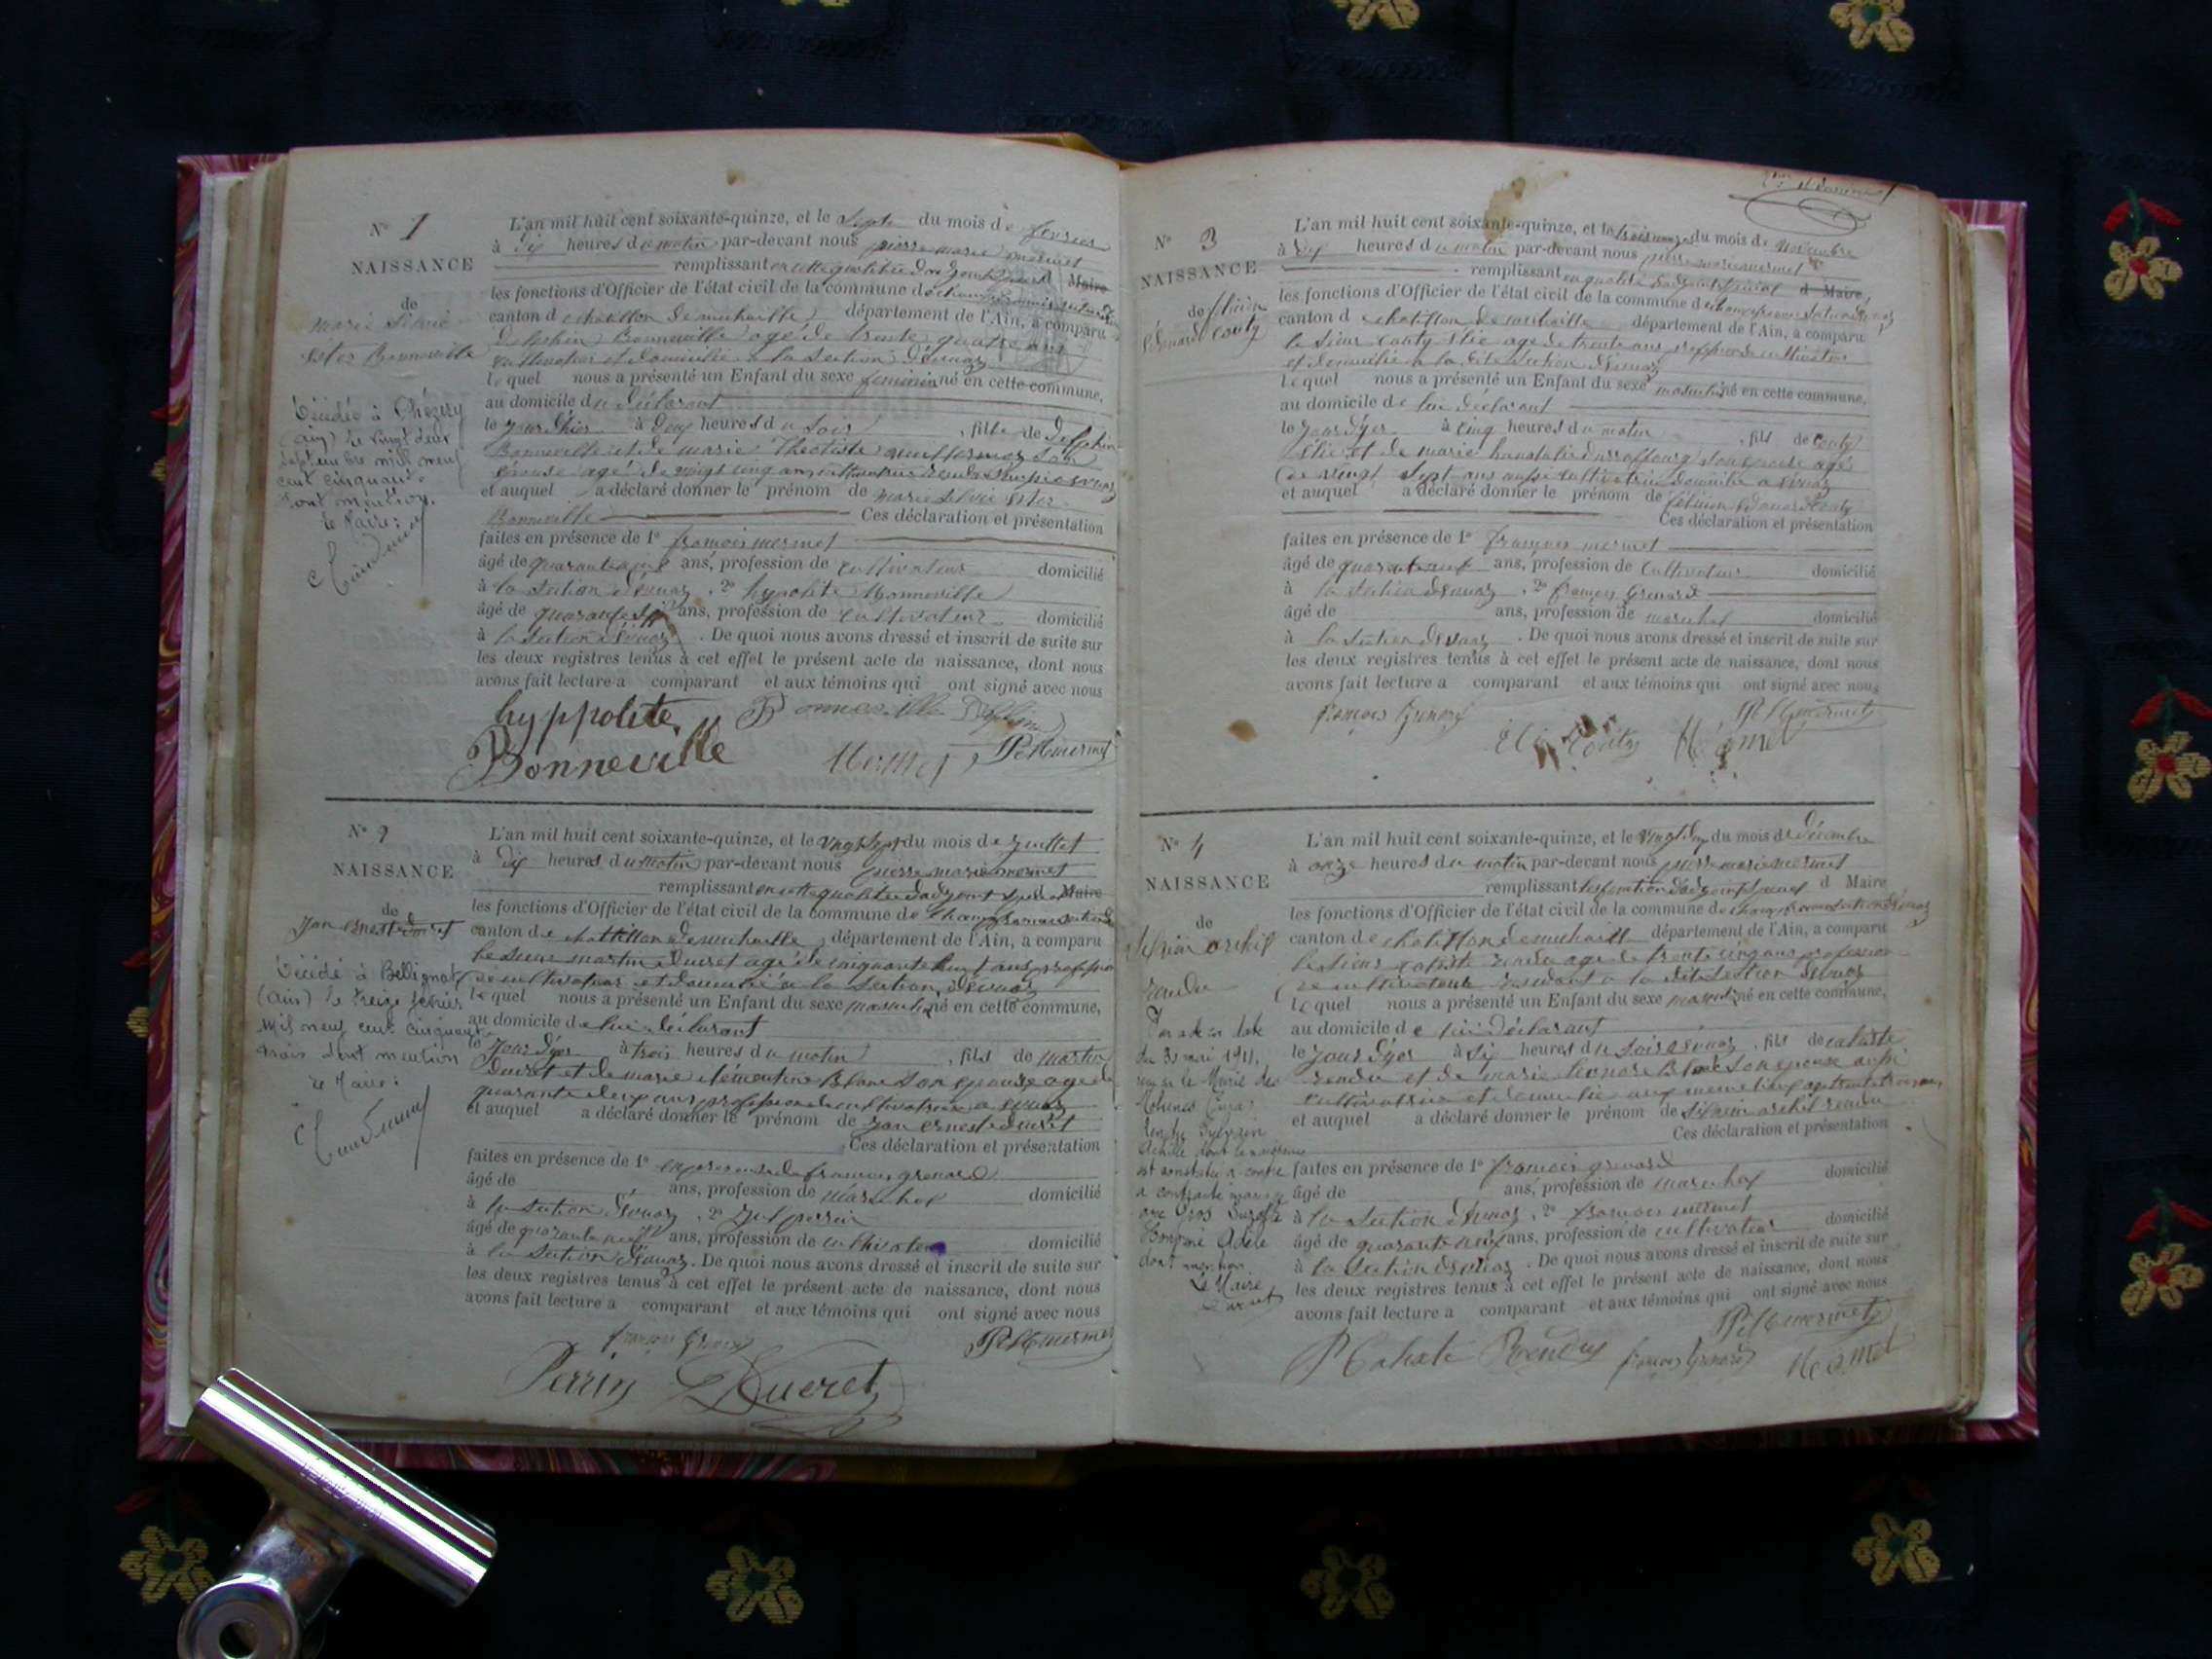 N° 1
NAISSANCE
de
Marie Silvie
Ester Bonneville
Décédée à Chézery
(Ain) le vingt deux
septembre mil neuf
cent cinquante
dont mention.
le Maire:
L'an mil huit cent soixante-quinze, et le Sept du mois de fevrier
à dix heures du matin par-devant nous pierre marie mermet
remplissant en cette qualitée d'adjoint spécial Maire
les fonctions d'Officier de l'état civil de la commune de champfromier section de
canton de chatillon de michaille département de l'Ain, a comparu
Delphin Bonneville agé de trente quatre ans
cultivateur et domicilié a la Section d'évuaz
lequel nous a présenté un Enfant du sexe feminin né en cette commune,
au domicile du déclarant
le jour d'hier à deux heures du soir, fille de Delphin
Bonneville et de marie Théotiste
épouse agé de vingt cinq ans
et auquel a déclaré donner le prénom de marie silvie Ester
Bonneville Ces déclaration et présentation
faites en présence de 1° francois mermet
âgé de quarante neuf ans, profession de cultivateur domicilié
à la Section d'évuaz, 2° hypolite Bonneville
âgé de quarante sept ans, profession de cultivateur domicilié
à la Section d'évuaz. De quoi nous avons dressé et inscrit de suite sur
les deux registres tenus à cet effet le présent acte de naissance, dont nous
avons fait lecture a comparant et aux témoins qui ont signé avec nous
hyppolite Bonneville Delphin
Bonneville Mermet PM mermet
N° 2
NAISSANCE
de
Jan ernest ducret
Décédé à Bellignat
(Ain) le treize février
mil neuf cent cinquante
trois dont mention
le Maire:
L'an mil huit cent soixante-quinze, et le vingt Sept du mois de juillet
à dix heures du matin par-devant nous pierre marie mermet
remplissant en cette qualitée d'adjoint spécial d Maire
les fonctions d'Officier de l'état civil de la commune de champfromier section de
canton de chatillon de michaille, département de l'Ain, a comparu
le Sieur martin Ducret agé de cinquante huit ans profession
de cultivateur et domicilié a la Section d'évuaz
lequel nous a présenté un Enfant du sexe masculin né en cette commune,
au domicile de lui déclarant
le jour d'yer à trois heures du matin, fils de martin
Ducret et de marie clémentine Blanc Son epouse agé de
quarante deux ans profession de cultivatrice a evuaz
et auquel a déclaré donner le prénom de jan ernest ducret
Ces déclaration et présentation
faites en présence de 1° en presence de francois grenard
âgé de ans, profession de marechal domicilié
à la Section d'évuaz, 2° Jul perrin
âgé de quarante neuf ans, profession de cultivateur domicilié
à la Section d'évuaz. De quoi nous avons dressé et inscrit de suite sur
les deux registres tenus à cet effet le présent acte de naissance, dont nous
avons fait lecture a comparant et aux témoins qui ont signé avec nous
françois Grenard PM mermet
Perrin Ducret
N° 3
NAISSANCE
de félicien
Edouard Couty
L'an mil huit cent soixante-quinze, et le du mois de Novembre
à dix heures du matin par-devant nous pierre marie mermet
remplissant en qualité d'adjoint spécial d Maire,
les fonctions d'Officier de l'état civil de la commune de champfromier section d'évuaz
canton de chatillon de michaille département de l'Ain, a comparu
le Sieur Couty Elie agé de trente ans profession de cultivateur
et domicilié a la dite Section d'évuaz
lequel nous a présenté un Enfant du sexe masculin né en cette commune,
au domicile de lui déclarant
le jour d'yer à cinq heures du matin, fils de Couty
Elie et de marie son epouse agé
de vingt Sept ans aussi cultivatrice domicilié a evuaz
et auquel a déclaré donner le prénom de félicien Edouard Couty
Ces déclaration et présentation
faites en présence de 1° françois mermet
âgé de quarante neuf ans, profession de Cultivateur domicilié
à la Section d'évuaz, 2° françois Grenard
âgé de ans, profession de marechal domicilié
à la Section d'évuaz. De quoi nous avons dressé et inscrit de suite sur
les deux registres tenus à cet effet le présent acte de naissance, dont nous
avons fait lecture a comparant et aux témoins qui ont signé avec nous
françois Grenard PM mermet
Elie Couty Mermet
N° 4
NAISSANCE
de
Silvin archil
rendu
Par acte en date
du 31 mai 1911,
reçu par le Maire de
Rendu Sylvain
Achille dont la naissance
est constatée ci-contre
a contracté mariage
avec Gros
Adèle
dont mention
Le Maire
L'an mil huit cent soixante-quinze, et le du mois de décembre
à onze heures du matin par-devant nous pierre marie mermet
remplissant les fonction d'adjoint spécial d Maire
les fonctions d'Officier de l'état civil de la commune de champfromier section d'évuaz
canton de chatillon de michaille département de l'Ain, a comparu
le Sieur calixte rendu agé de trente cinq ans profession
de cultivateur residant a la dite Section d'évuaz
lequel nous a présenté un Enfant du sexe masculin né en cette commune,
au domicile de lui déclarant
le jour d'yer à six heures du soir a evuaz, fils de calixte
rendu et de marie léonore Blanc Son epouse aussi
cultivatrice et domicilie
et auquel a déclaré donner le prénom de silvin archil rendu
Ces déclaration et présentation
faites en présence de 1° francois grenard
âgé de ans, profession de marechal domicilié
à la Section d'évuaz, 2° francois mermet
âgé de quarante neuf ans, profession de cultivateur domicilié
à la Section d'évuaz. De quoi nous avons dressé et inscrit de suite sur
les deux registres tenus à cet effet le présent acte de naissance, dont nous
avons fait lecture a comparant et aux témoins qui ont signé avec nous
PM mermet
Calixte Rendu françois Grenard Mermet